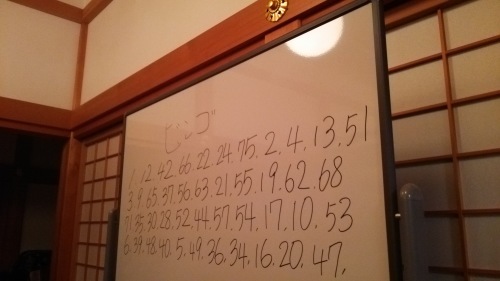 ビンゴ
1. 12. 42. 66. 22. 24. 75. 2. 4. 13. 51
3. 9. 65. 37. 56. 63. 21. 55. 19. 62. 68
71. 35. 30. 28. 52. 44. 57. 54. 17. 10. 53
6. 39. 48. 40. 5. 49. 36. 34. 16. 20. 47.